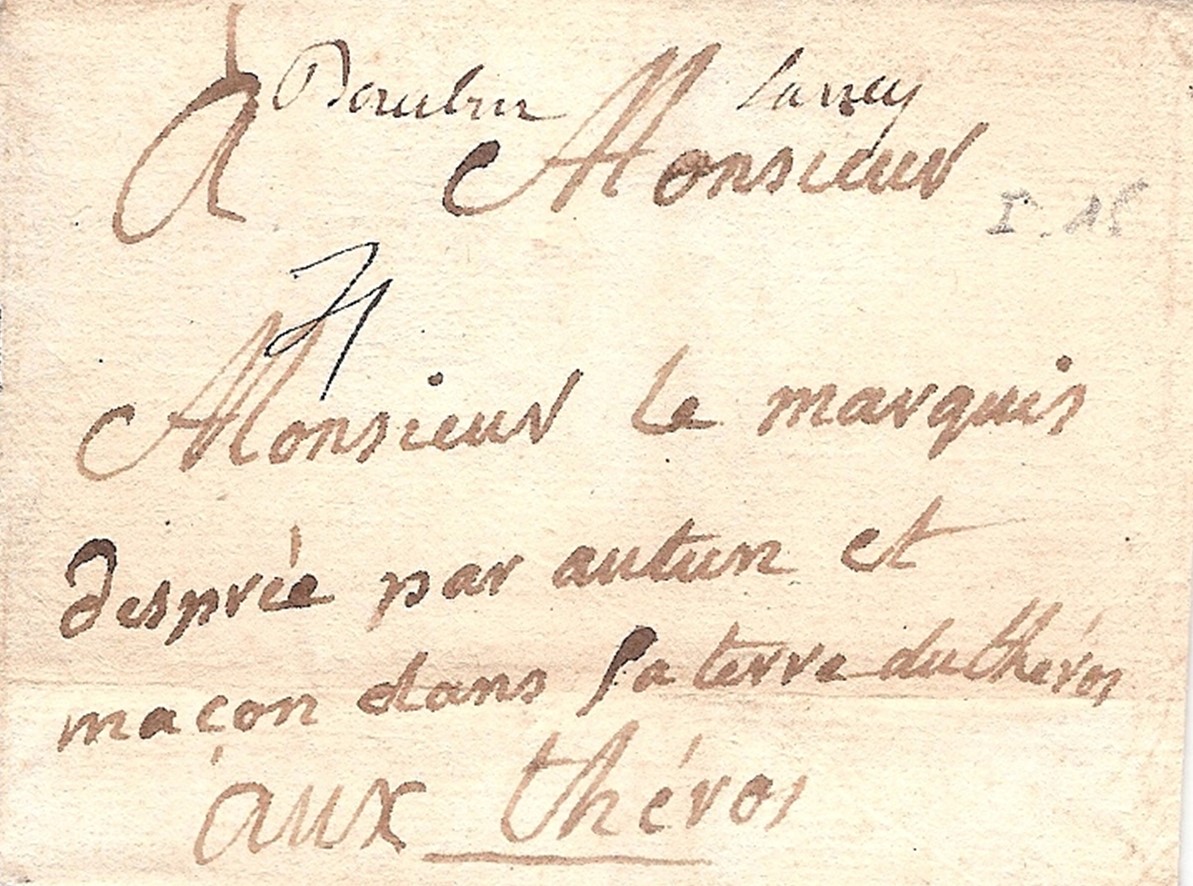 Bourbon Lancy
A Monsieur
P. 15
71
Monsieur le marquis
desprée par autun et
maçon dans sa terre du théros
aux théros